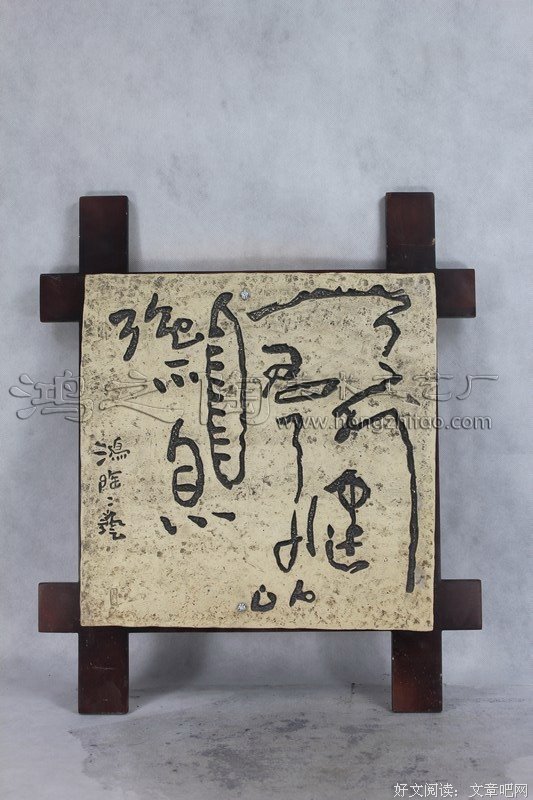 天行健
君子以
自
強不息
鴻陶之藝
鸿之陶艺术工艺厂
www.hongzhitao.com
好文阅读：文章吧网